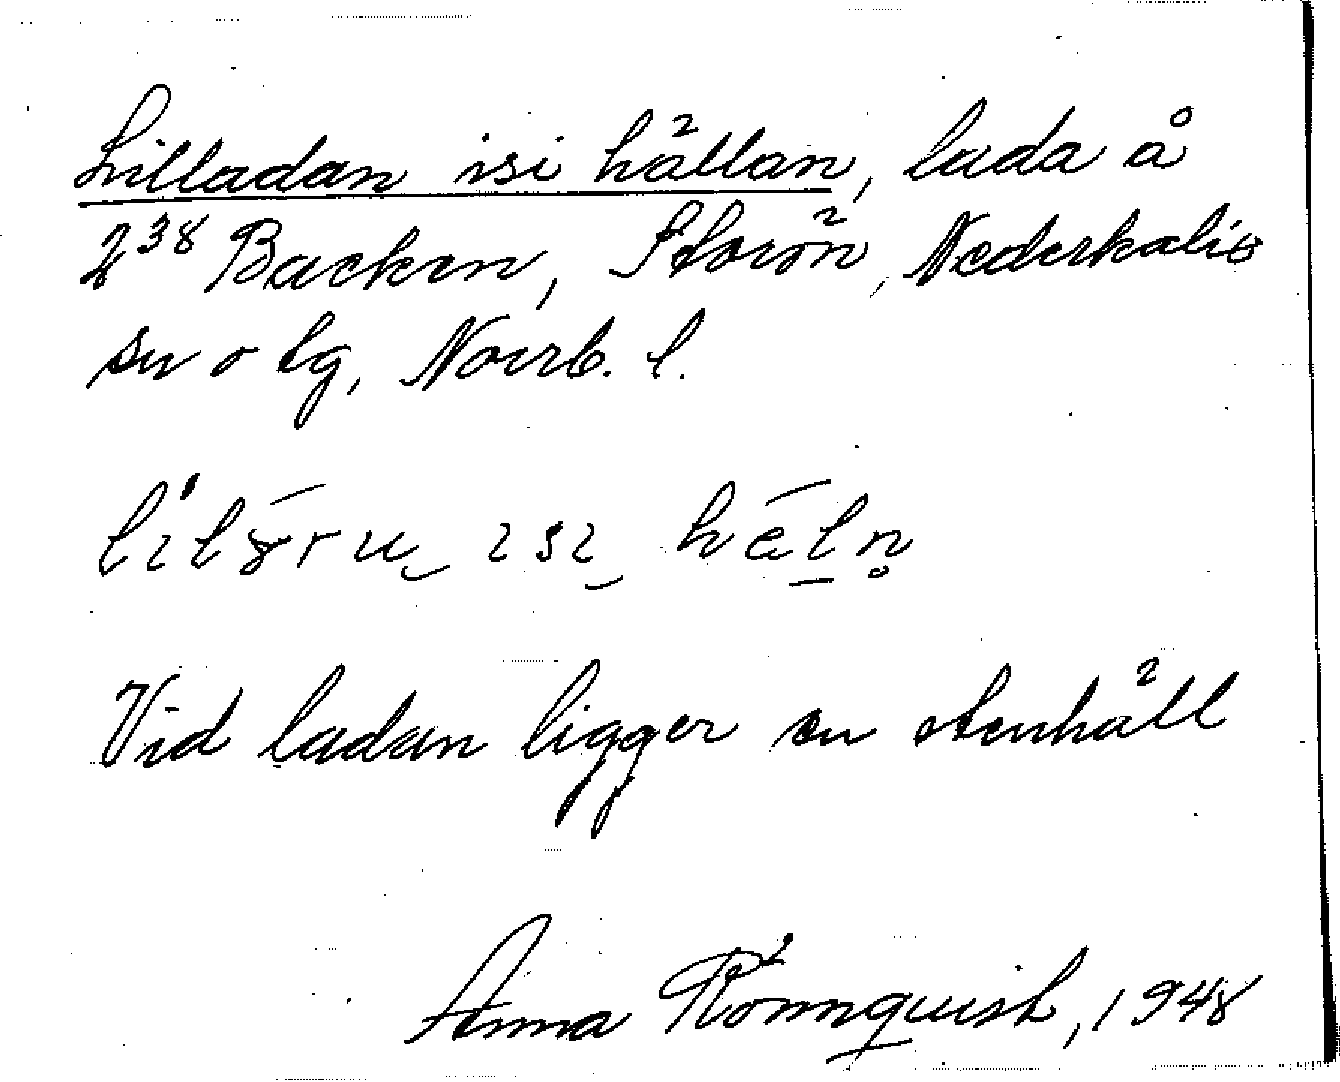 Lilladan isi hällan, lada å
2³⁸ Backen, Storön, Nederkalix
sn o tg, Norrb. l.
Vid ladan ligger en stenhäll
Anna Rönnquist, 1948